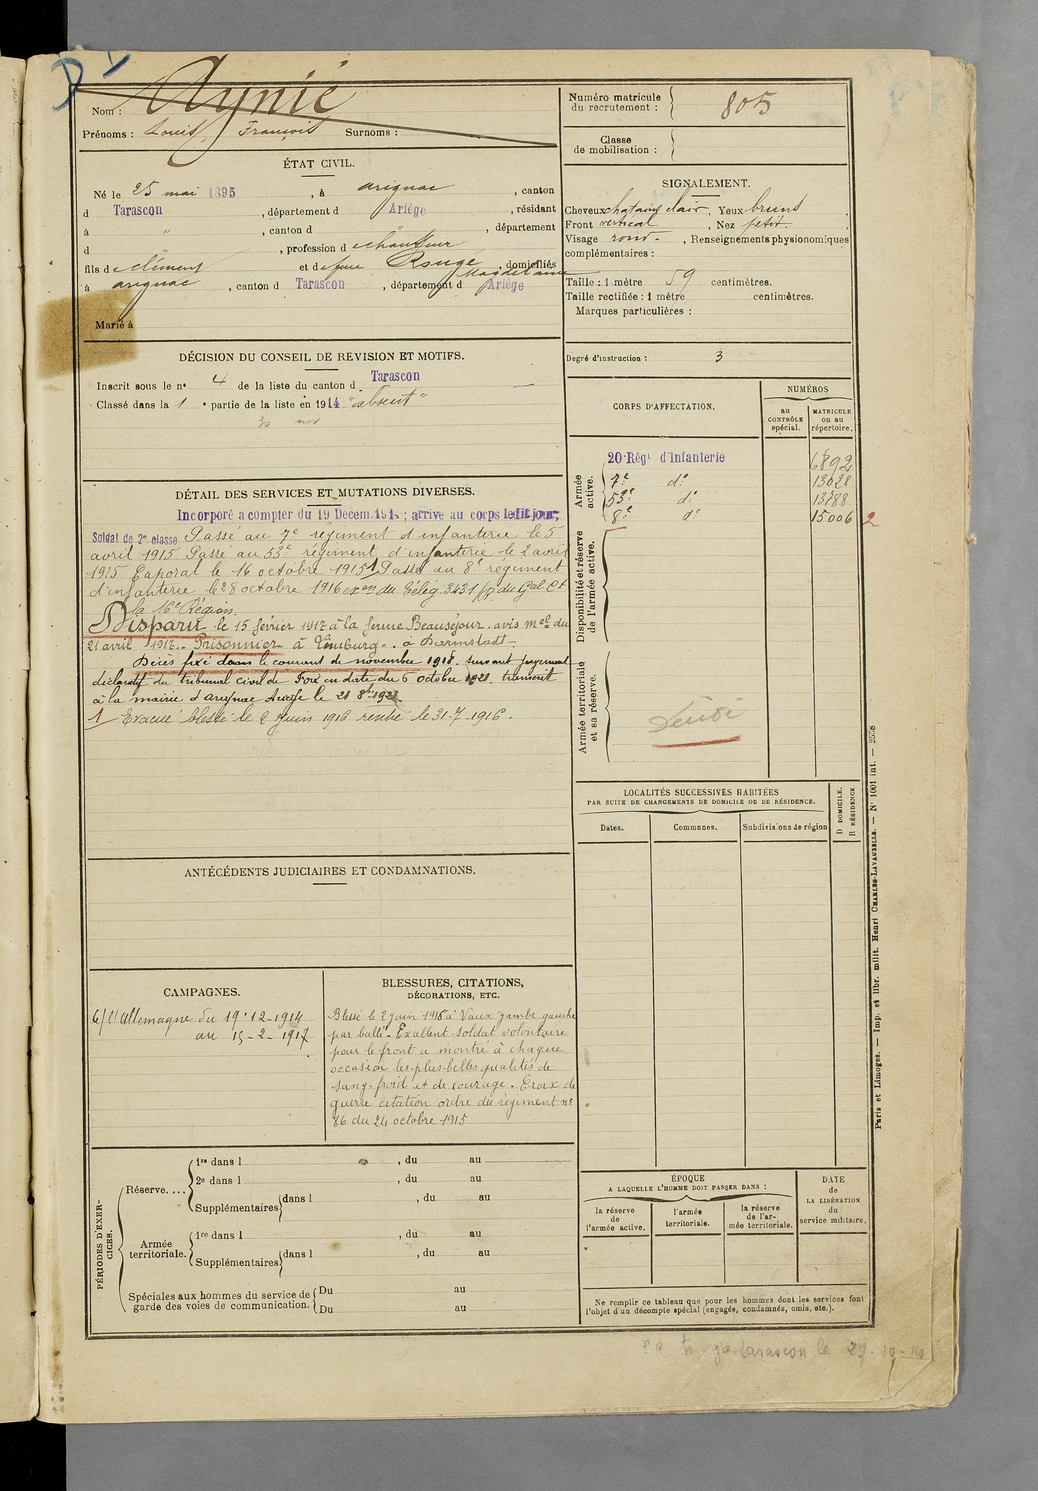 D
Nom : Aynié
Prénoms : Louis, François Surnoms :
Numéro matricule du recrutement : 805
Classe de mobilisation :
ÉTAT CIVIL.
Né le 25 mai 1895, à arignac, canton
d Tarascon, département d Ariège, résidant
à ", canton d ", département
d , profession de chauffeur
fils de clément et de feue Rouge Magdelaine, domiciliés
à arignac, canton d Tarascon, département d Ariège
Marié à
SIGNALEMENT.
Cheveux chatains clair, Yeux bruns,
Front vertical, Nez petit.
Visage rond., Renseignements physionomiques
complémentaires :
Taille : 1 mètre 59 centimètres.
Taille rectifiée : 1 mètre centimètres.
Marques particulières :
Degré d'instruction : 3
DÉCISION DU CONSEIL DE REVISION ET MOTIFS.
Inscrit sous le n° 4 de la liste du canton d Tarascon
Classé dans la 1 e partie de la liste en 1914 "absent"
DÉTAIL DES SERVICES ET MUTATIONS DIVERSES.
Incorporé a compter du 19 Décem. 191 ; arrivé au corps ledit jour;
Soldat de 2e classe Passé au 7e régiment d'infanterie le 5
avril 1915 Passé au 53e régiment d'infanterie le 2 avril
1915 Caporal le 16 octobre 1915 1 Passé au 8e régiment
d'infanterie le 28 octobre 1916 exon du Télég. 3431 du Gal Ct
la 16e Région.
Disparu le 15 février 1917 à la ferme Beauséjour. avis Mel du
21 avril 1917. Prisonnier à Limburg. à Darmstadt.
Décès fixé dans le courant de novembre 1918. suivant jugement
déclaratif du tribunal civil de Foix en date du 6 octobre 1921. transcrit
à la mairie d'arignac Ariège le 21 8bre 1921
1 Évacué blessé le 2 juin 1916 rentré le 31-7-1916.
CORPS D'AFFECTATION.
NUMÉROS
au CONTRÔLE spécial.
MATRICULE ou au répertoire.
Armée active.
20e Régt d'Infanterie 6892
7e do 13028
53e do 13788
8e do 15006 2
Disponibilité et réserve de l'armée active.
Armée territoriale et sa réserve.
LOCALITÉS SUCCESSIVES HABITÉES
PAR SUITE DE CHANGEMENTS DE DOMICILE OU DE RÉSIDENCE.
Dates. Communes. Subdivisions de région
D DOMICILE. R RÉSIDENCE
ANTÉCÉDENTS JUDICIAIRES ET CONDAMNATIONS.
CAMPAGNES.
C/ l'allemagne du 19-12-1914
au 15-2-1917
BLESSURES, CITATIONS,
DÉCORATIONS, ETC.
Blessé le 2 juin 1916 à Vaux jambe gauche
par balle. Excellent soldat volontaire
pour le front a montré à chaque
occasion les plus belles qualités de
sang-froid et de courage. Croix de
guerre citation ordre du régiment n°
86 du 24 octobre 1915
PÉRIODES D'EXERCICES.
Réserve....
1re dans l , du au
2e dans l , du au
Supplémentaires dans l , du au
Armée territoriale.
1re dans l , du au
Supplémentaires dans l , du au
Spéciales aux hommes du service de garde des voies de communication.
Du au
Du au
ÉPOQUE
A LAQUELLE L'HOMME DOIT PASSER DANS :
la réserve de l'armée active.
l'armée territoriale.
la réserve de l'armée territoriale.
DATE de LA LIBÉRATION du service militaire.
Ne remplir ce tableau que pour les hommes dont les services font
l'objet d'un décompte spécial (engagés, condamnés, omis, etc.).
Paris et Limoges. — Imp. et libr. milit. Henri CHARLES-LAVAUZELLE. — N° 1001 int. — 2558
Tarascon le